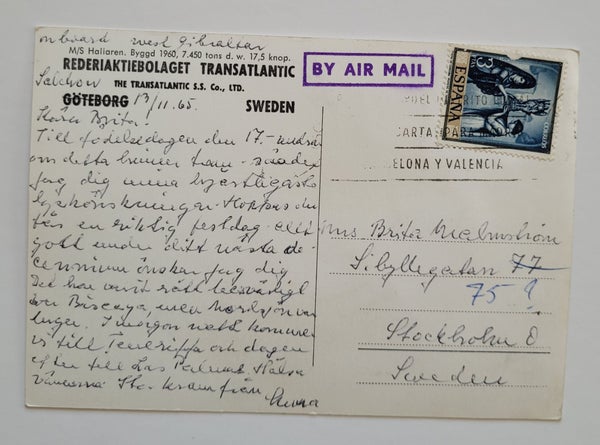 on board west Gibraltar
M/S Hallaren. Byggd 1960, 7.450 tons d. w. 17,5 knop.
REDERIAKTIEBOLAGET TRANSATLANTIC
THE TRANSATLANTIC S.S. Co., LTD.
GÖTEBORG 13/11.65. SWEDEN
Kära Brita!
Till födelsedagen den 17.
om detta hinner fram - sänder
jag dig mina hjärtligaste
lyckönskningar. Hoppas du
får en riktig festdag. allt
gott under ditt nästa de-
cennium önskar jag dig
Det har varit rätt besvärligt
över Biscaya, men Nordsjön var
lugn. I morgon natt kommer
vi till Teneriffa och dagen
efter till Las Palmas. Hälsa
vännerna
Anna
BY AIR MAIL
3
ESPAÑA
CARTA PARA
BARCELONA Y VALENCIA
Mrs Brita Malmström
Sibyllegatan 77
75 ?
Stockholm Ö
Sweden